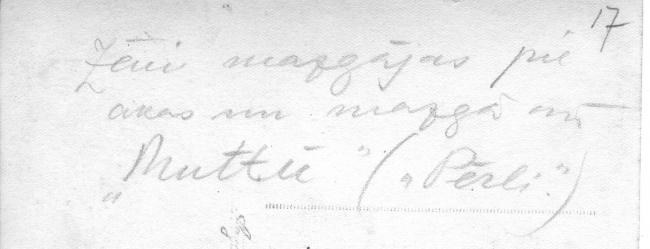 17
Zēni mazgājas pie
akas un mazgā arī
„Muttū" („Pērli".)